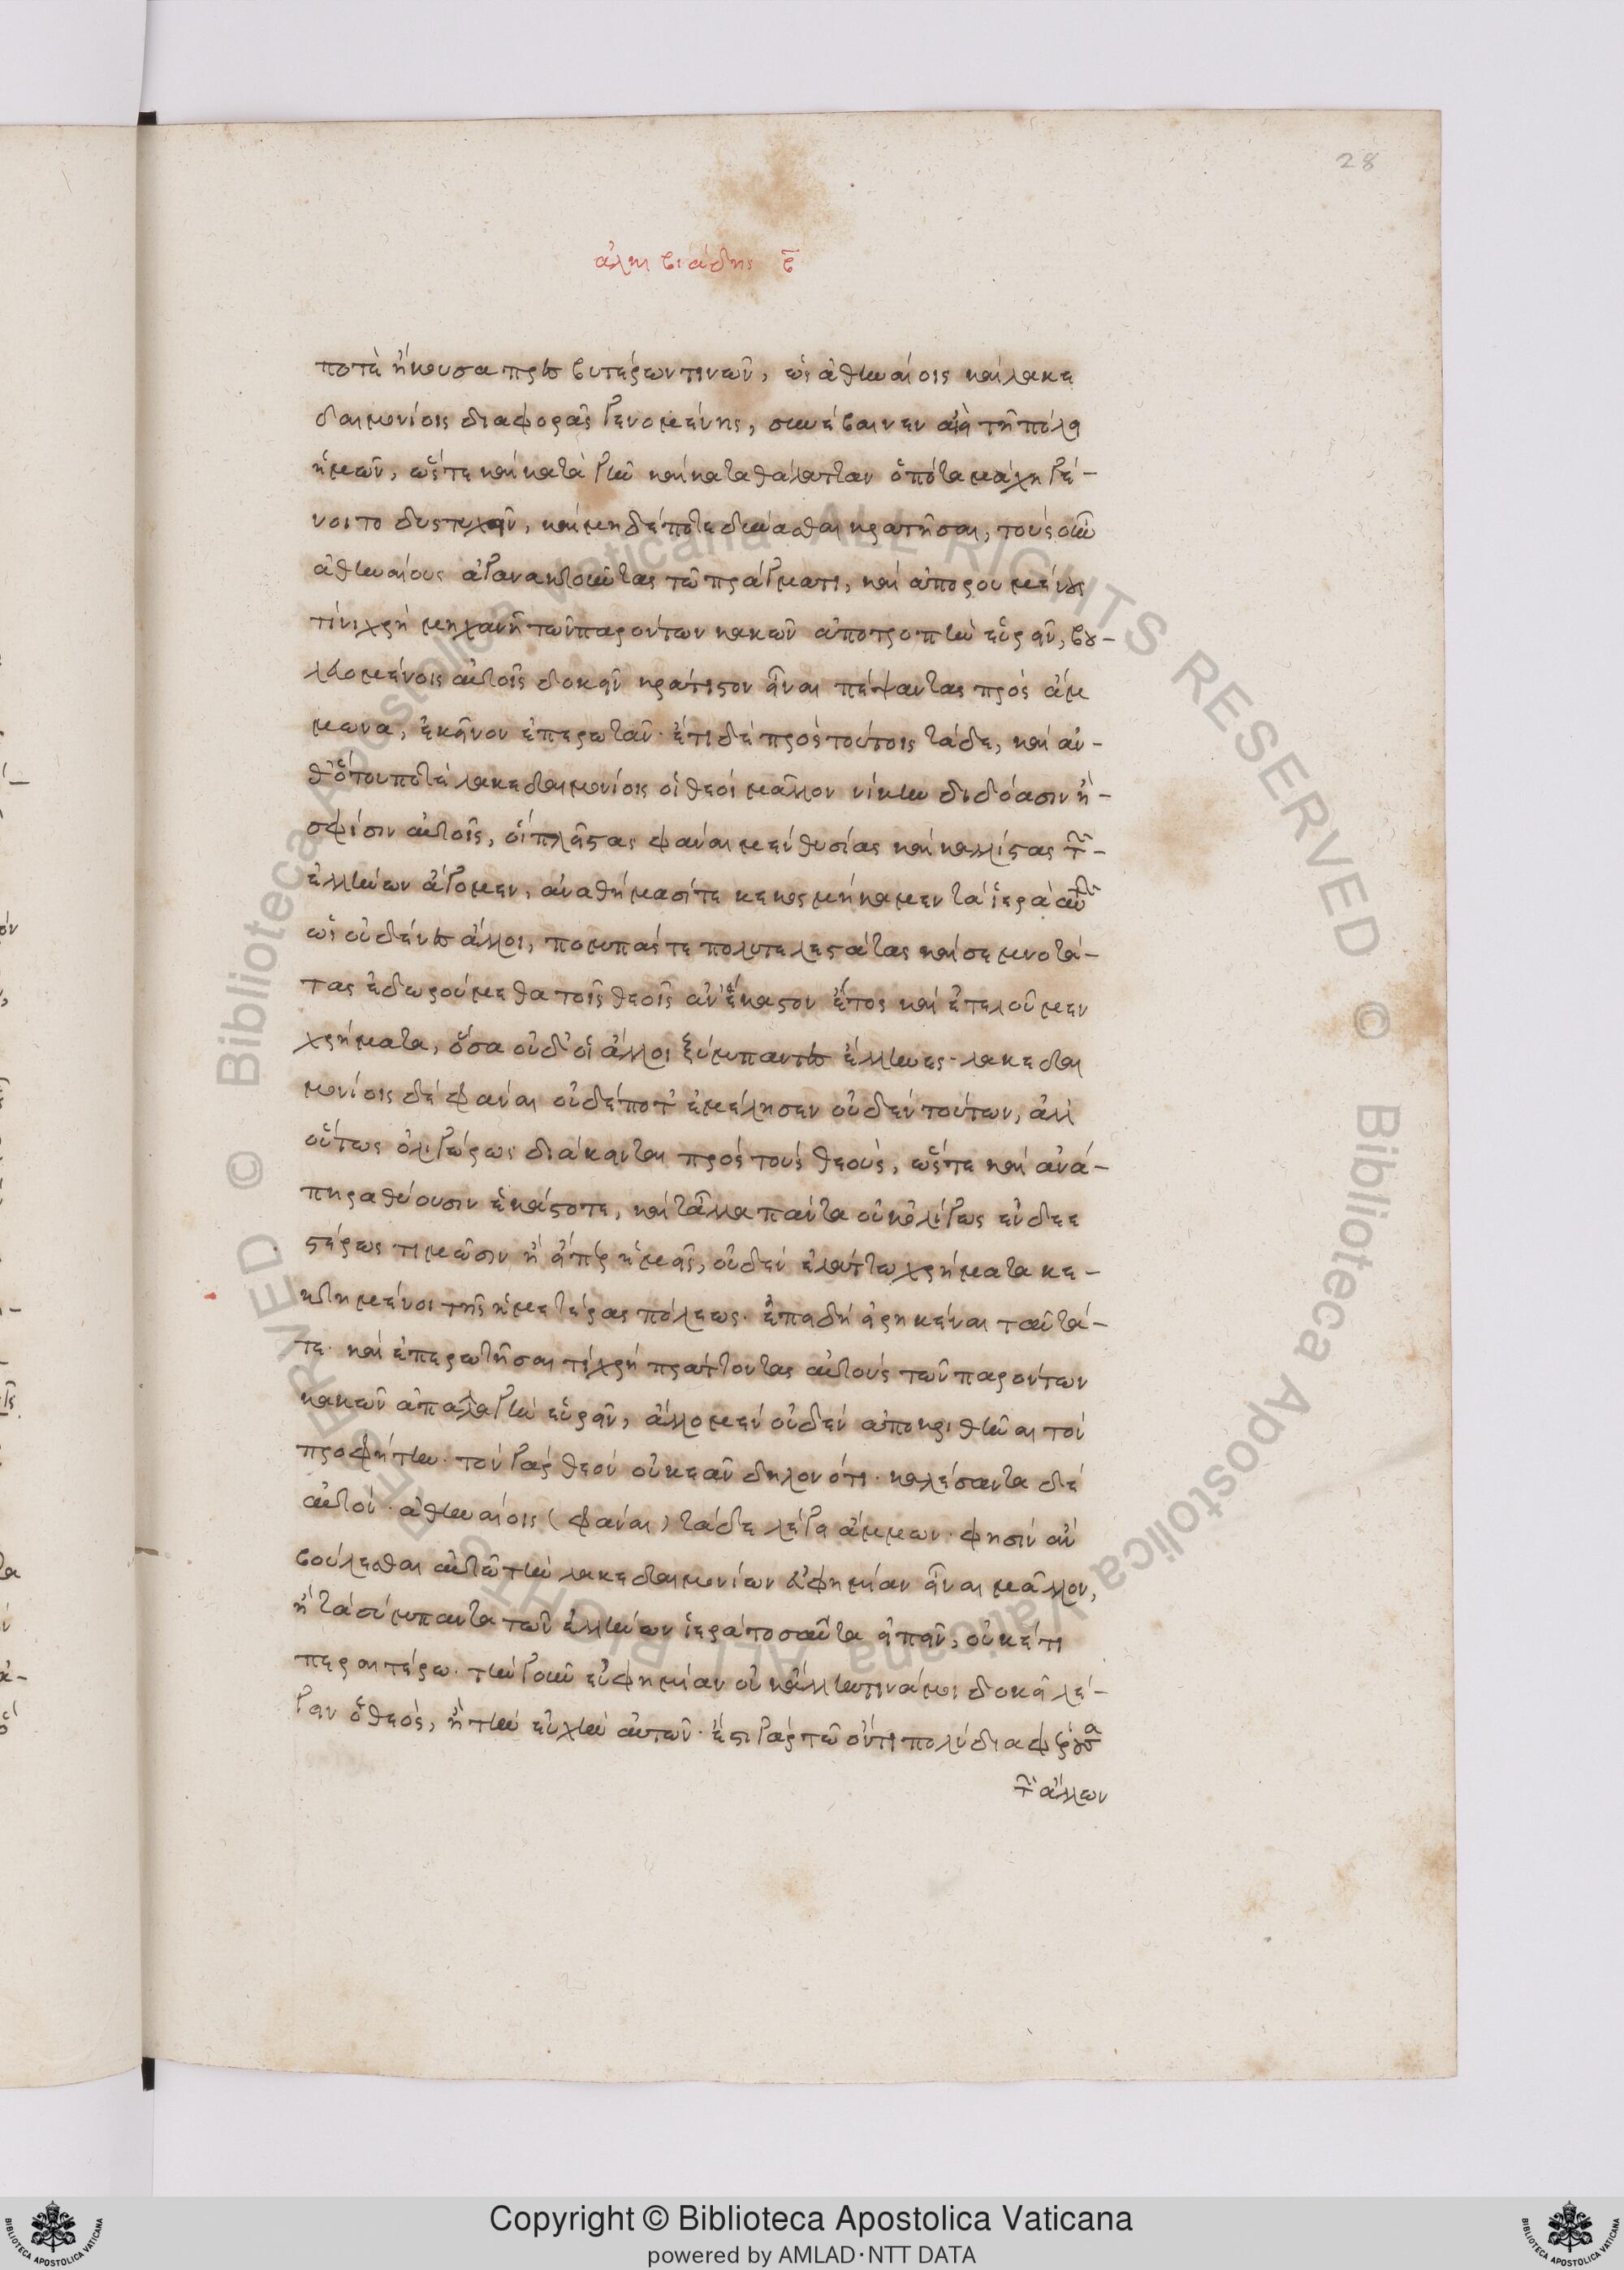 28
ἀλκιβιάδης β̄
ποτὲ ἤκουσα πρεσβυτέρων τινῶν, ὡς ἀθηναίοις καὶ λακε
δαιμονίοις διαφορᾶς γενομένης, συνέβαινεν ἀεὶ τῇ πόλει
ἡμῶν, ὥστε καὶ κατὰ γῆν καὶ κατὰ θάλατταν ὁπότε μάχη γέ-
νοιτο δυστυχεῖν, καὶ μηδέποτε δύνασθαι κρατῆσαι, τοὺς οὖν
ἀθηναίους ἀγανακτοῦντας τῷ πράγματι, καὶ ἀπορουμένους
τίνι χρὴ μηχανῇ τῶν παρόντων κακῶν ἀποτροπὴν εὑρεῖν, βου-
λευομένοις αὐτοῖς δοκεῖν κράτιστον εἶναι πέψαντας πρὸς ἄμ
μωνα, ἐκεῖνον ἐπερωτᾶν· ἔτι δὲ πρὸς τούτοις τάδε, καὶ ἀν-
θ' ὅτου ποτὲ λακεδαιμονίοις οἱ θεοὶ μᾶλλον νίκην διδόασιν ἢ-
σφίσιν αὐτοῖς, οἳ πλείστας φάναι μὲν θυσίας καὶ καλλίστας τῶν-
ἑλλήνων ἄγομεν, ἀναθήμασί τε κεκοσμήκαμεν τὰ ἱερὰ αὐτῶν
ὡς οὐδένες ἄλλοι, πομπάς τε πολυτελεστάτας καὶ σεμνοτά-
τας ἐδωρούμεθα τοῖς θεοῖς ἀν' ἕκαστον ἔτος καὶ ἐτελοῦμεν
χρήματα, ὅσα οὐδ' οἱ ἄλλοι ξύμπαντες ἕλληνες· λακεδαι
μονίοις δὲ φάναι οὐδέποτ' ἐμέλησεν οὐδὲν τούτων, ἀλλ'
οὕτως ὀλιγώρως διάκεινται πρὸς τοὺς θεοὺς, ὥστε καὶ ἀνά-
πηρα θύουσιν ἑκάστοτε, καὶ τἄλλα πάντα οὐκ ὀλίγως ἐνδεε
στέρως τιμῶσιν ἢ ἅπερ ἡμεῖς, οὐδὲν ἐλάττω χρήματα κε-
κτημένοι τῆς ἡμετέρας πόλεως· ἐπειδὴ εἰρηκέναι ταῦτά-
τε· καὶ ἐπερωτῆσαι τί χρὴ πράττοντας αὐτοὺς τῶν παρόντων
κακῶν ἀπαλαγὴν εὑρεῖν, ἄλλο μὲν οὐδὲν ἀποκριθῆναι τὸν
προφήτην· τὸν γὰρ θεὸν οὐκ ἐᾶν δηλονότι· καλέσαντα δὲ
αὐτὸν· ἀθηναίοις (φάναι) τάδε λέγει ἄμμων· φησὶν ἂν
βούλεσθαι αὐτῷ τὴν λακεδαιμονίων εὐφημίαν εἶναι μᾶλλον,
ἢ τὰ σύμπαντα τῶν ἑλλήνων ἱερά· τοσαῦτα εἰπεῖν, οὐκέτι
περαιτέρω· τὴν γοῦν εὐφημίαν οὐκ ἄλλην τινά μοι δοκεῖ λέ-
γειν ὁ θεὸς, ἢ τὴν εὐχὴν αὐτῶν· ἔστι γὰρ τῷ ὄντι πολὺ διαφέρουσα
τῶν ἄλλων